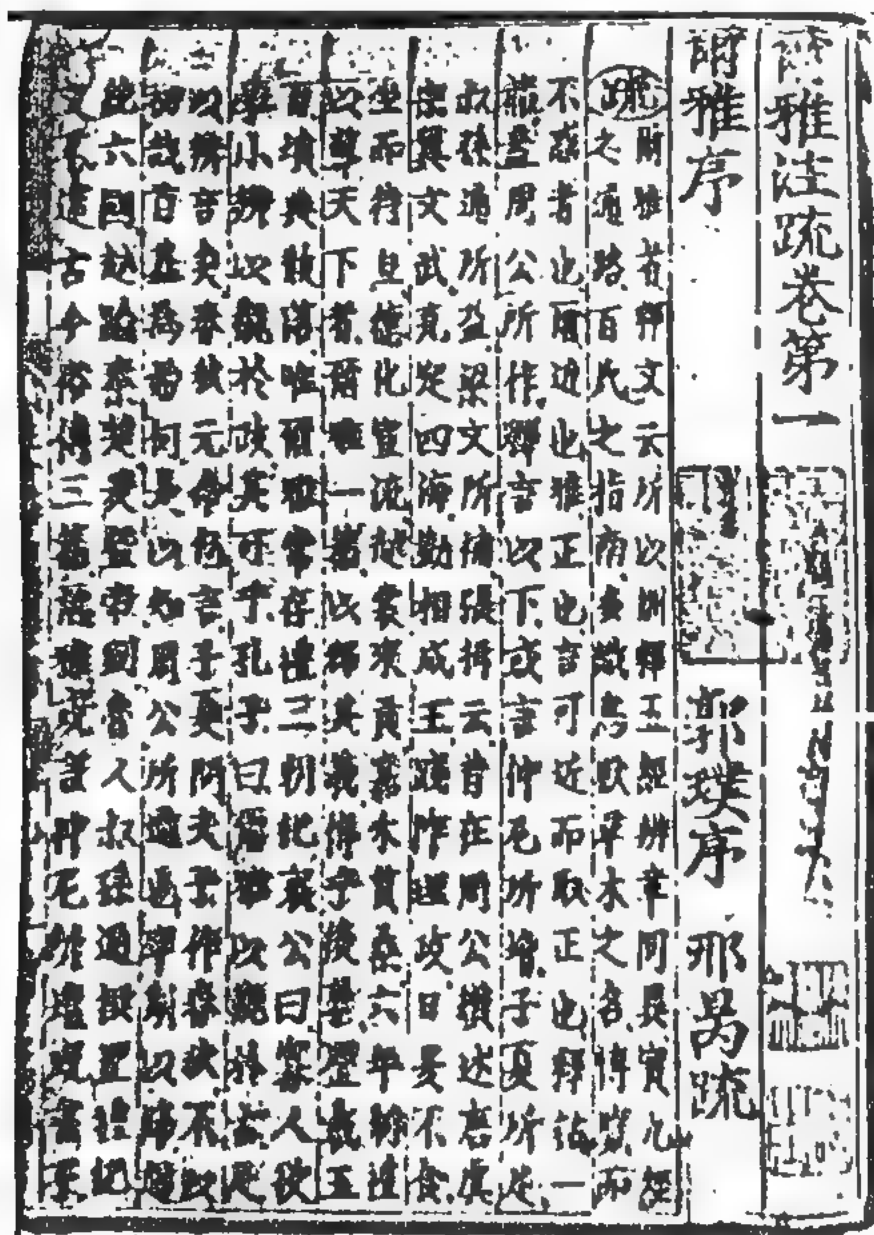 爾雅注疏卷第一
爾雅序 郭璞序 邢昺疏
疏爾雅者釋文云所以訓釋五經辨章同異實九經
之通路百氏之指南多識鳥獸草木之名博覽而
不惑者也爾近也雅正也言可近而取正也釋詁一
篇蓋周公所作釋言以下或言仲尼所增子夏所足
叔孫通所益梁文所補張揖云昔在周公纘述唐虞
宗翼文武克定四海勤相成王踐阼理政日昃不食
坐而待旦德化宣流越裳來貢嘉禾貫桑六年制禮
以導天下著爾雅一篇以釋其義傳乎後嬖歷載五
百墳典散落唯爾雅常存禮三朝記哀公曰寡人欲
學小辨以觀於政其可乎孔子曰爾雅以觀於古足
以辨言矣春秋元命包言子夏問夫子作春秋不以
初哉首基為始何是以知周公所造也率斯以降超
絕六國越踰秦楚爰暨帝劉魯人叔孫通撰置禮記
文不違古今俗傳三篇爾雅或言仲尼所增或言子